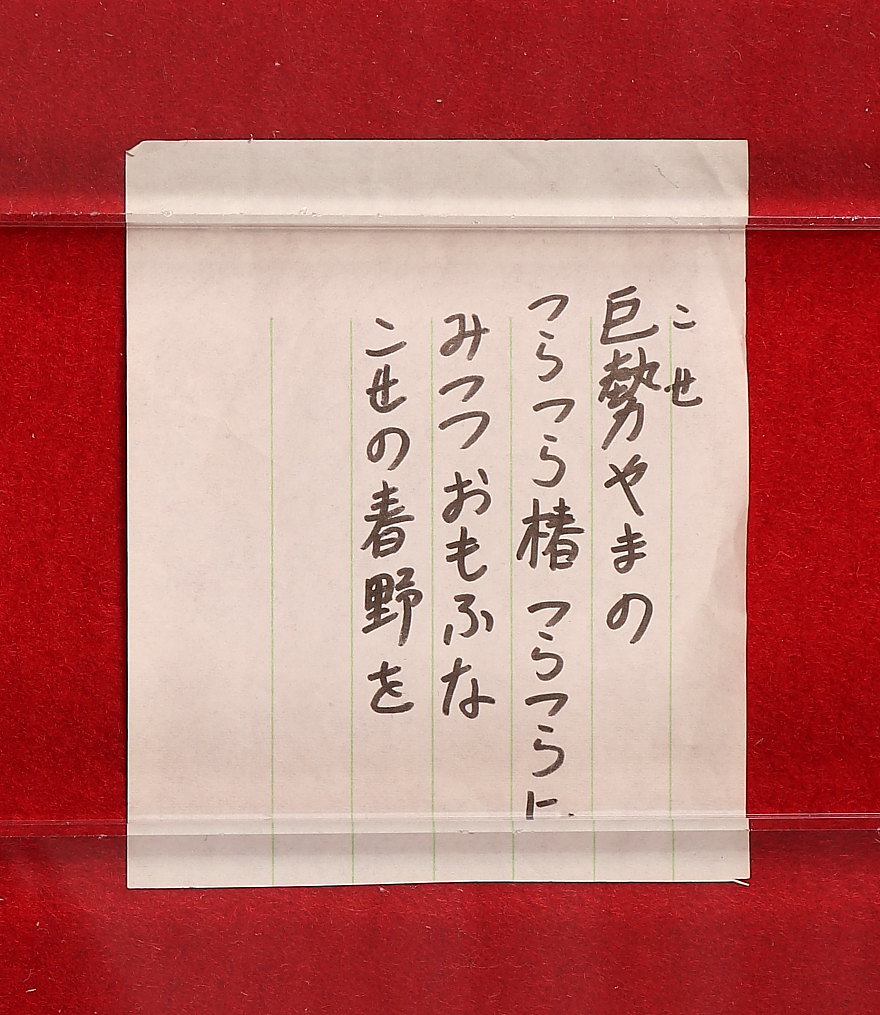 こせ
巨勢やまの
つらつら椿 つらつらに
みつつおもふな
こせの春野を